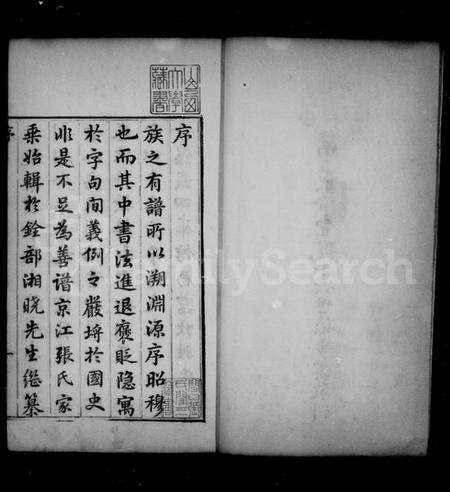 序
族之有譜所以溯淵源序昭穆
也而其中書法進退褒貶隐寓
於字句間義例之嚴埒於國史
非是不足為善譜京江張氏家
乗始輯於銓部湘曉先生继纂
序
山西大學藏書
FamilySearch